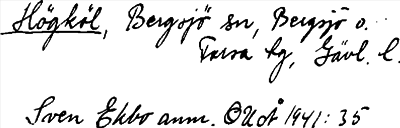 Högköl, Bergsjö sn, Bergsjö o.
Torsa tg, Gävl. l.
Sven Ekbo anm. OUÅ 1941: 35